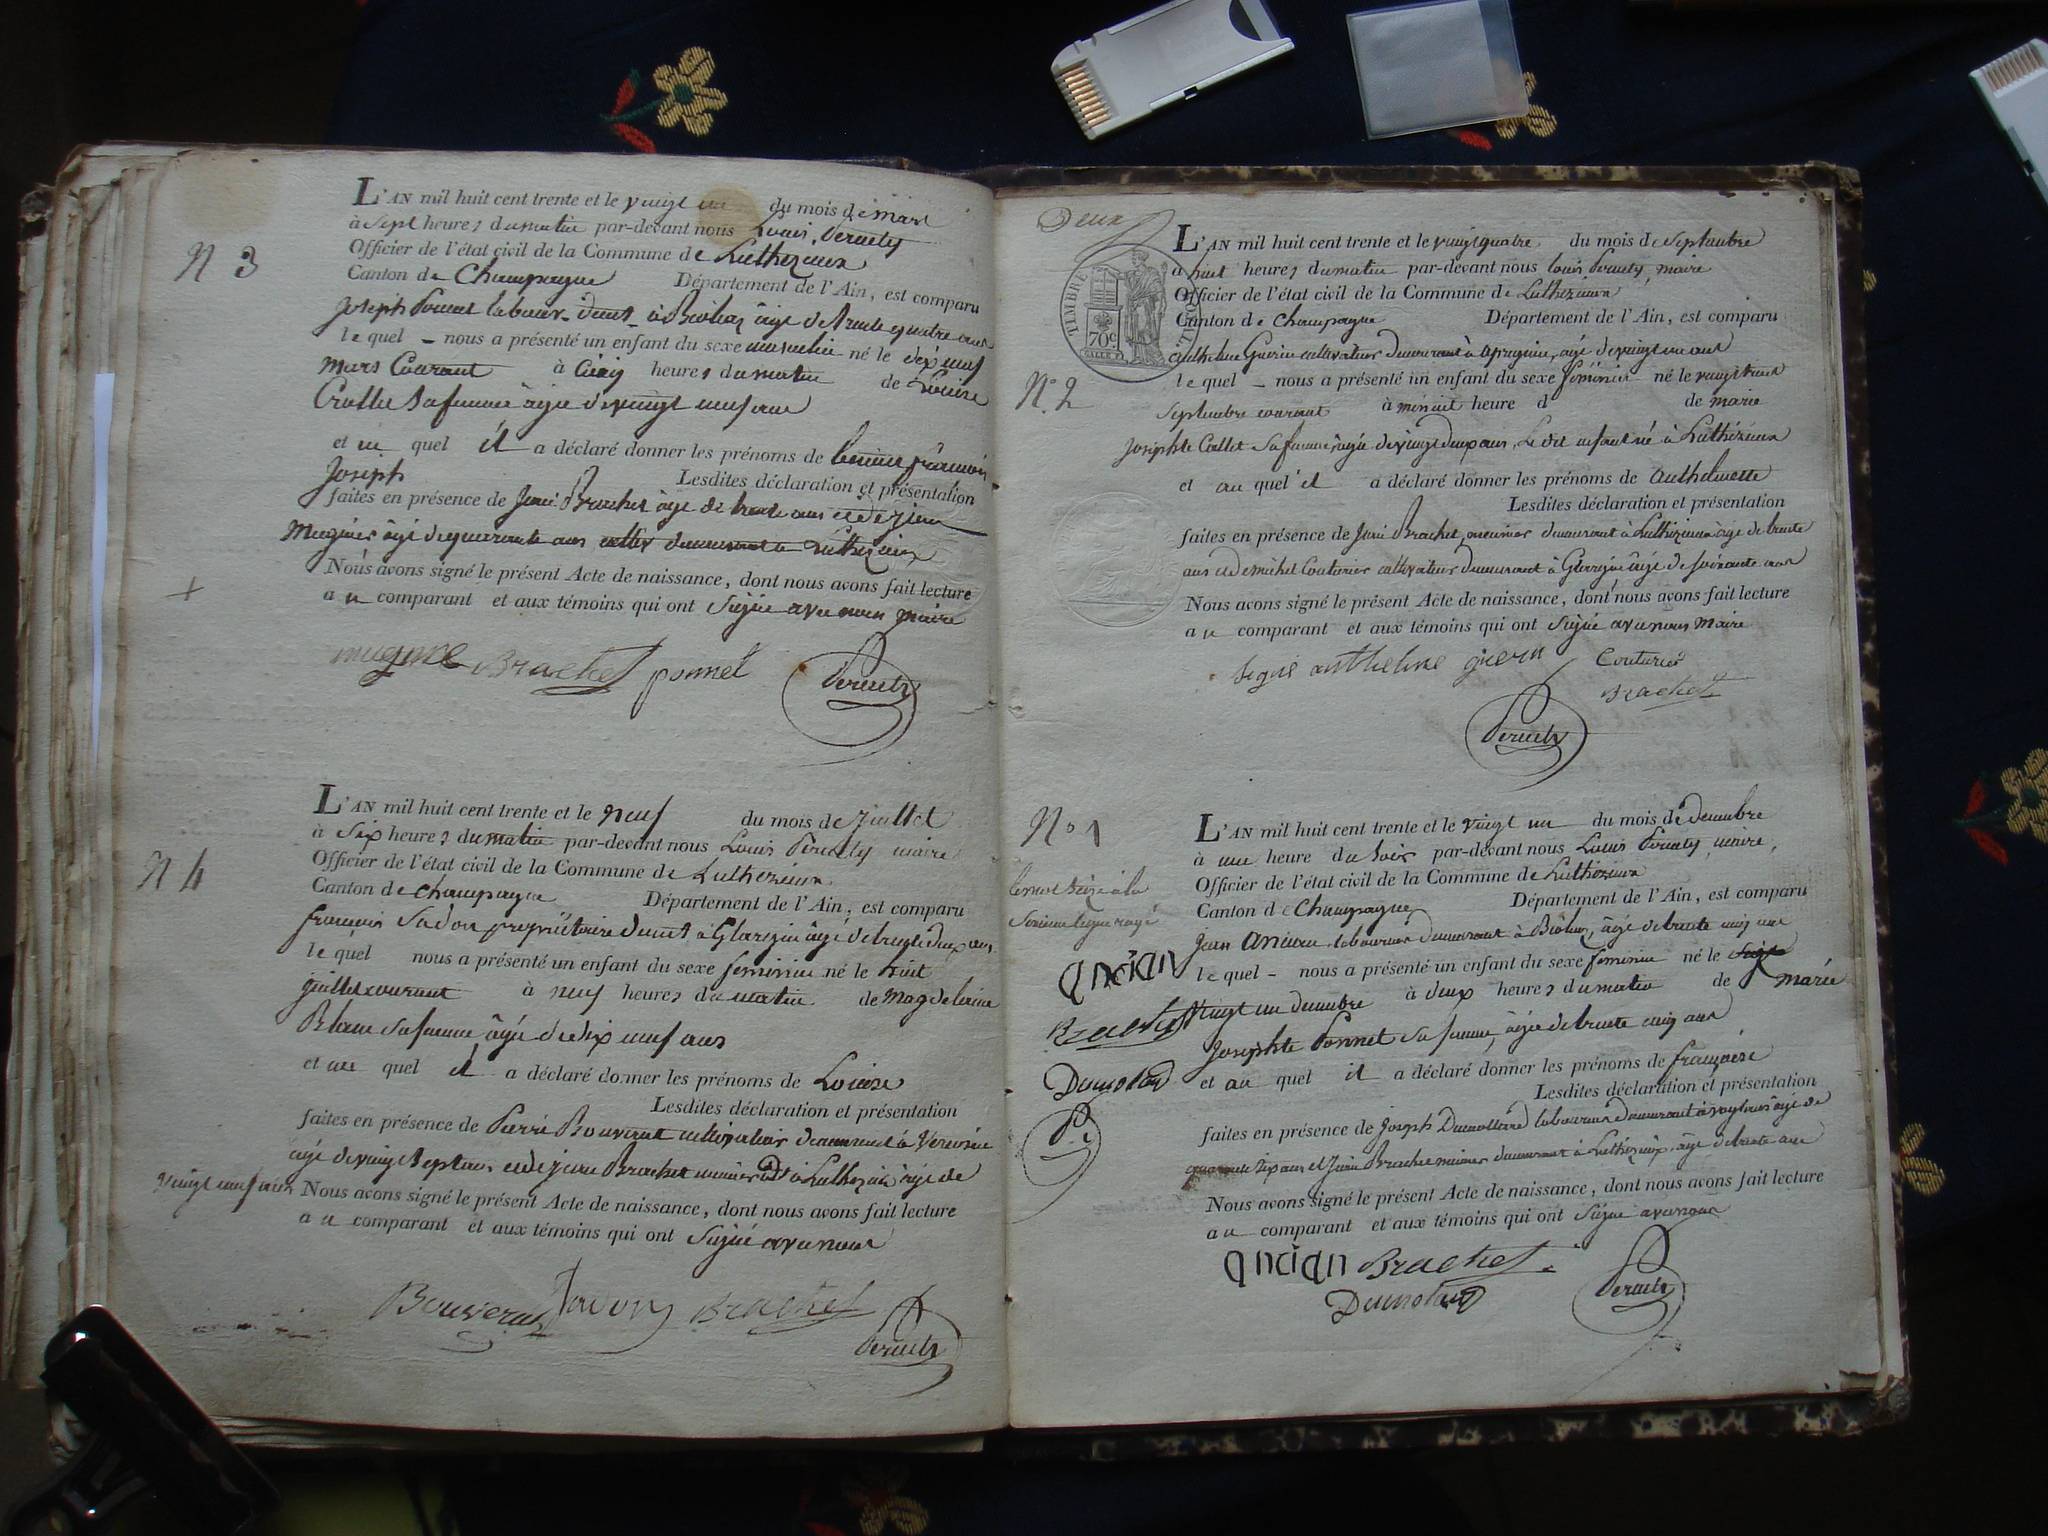 N 3
L'AN mil huit cent trente et le vingt un du mois de mars
à sept heures du matin par-devant nous Louis
Officier de l'état civil de la Commune de Luthezieux
Canton de Champagne Département de l'Ain, est comparu
Joseph Ponnet âgé de trente quatre ans
le quel - nous a présenté un enfant du sexe masculin né le dix neuf
mars Courant à Cinq heures du matin de Louise
sa femme âgée de vingt neuf ans
et au quel il a déclaré donner les prénoms de françois
Joseph Lesdites déclaration et présentation
faites en présence de Brachet âgé de trente ans et de jean
âgé de quarante ans Luthezieux
Nous avons signé le présent Acte de naissance, dont nous avons fait lecture
au comparant et aux témoins qui ont signé avec nous maire
Brachet ponnet
N 4
L'AN mil huit cent trente et le neuf du mois de juillet
à six heures du matin par-devant nous Louis maire
Officier de l'état civil de la Commune de Luthezieux
Canton de Champagne Département de l'Ain, est comparu
françois propriétaire à âgé de trente deux ans
le quel nous a présenté un enfant du sexe féminin né le huit
juillet courant à neuf heures du matin de Magdelaine
Blanc sa femme âgée de dix neuf ans
et au quel il a déclaré donner les prénoms de Louise
Lesdites déclaration et présentation
faites en présence de Pierre Bouverat cultivateur demeurant à
âgé de vingt sept ans et de Brachet meunier à Luthezieux âgé de
vingt neuf ans Nous avons signé le présent Acte de naissance, dont nous avons fait lecture
au comparant et aux témoins qui ont signé avec nous
Bouverat Brachet
Deux
TIMBRE
70c
L'AN mil huit cent trente et le vingt quatre du mois de septembre
à huit heures du matin par-devant nous louis maire
Officier de l'état civil de la Commune de Luthezieux
Canton de Champagne Département de l'Ain, est comparu
Anthelme Guerin cultivateur demeurant à âgé de vingt un ans
N° 2
le quel - nous a présenté un enfant du sexe féminin né le vingt trois
septembre courant à minuit heure d de marie
Josephte Collet sa femme âgée de vingt deux ans, Le dit enfant né à Luthézieux
et au quel il a déclaré donner les prénoms de anthelmette
Lesdites déclaration et présentation
faites en présence de Brachet, meunier demeurant à Luthezieux âgé de trente
ans et de michel Couturier cultivateur demeurant à âgé de soixante ans
Nous avons signé le présent Acte de naissance, dont nous avons fait lecture
au comparant et aux témoins qui ont signé avec nous Maire
signé anthelme guerin Couturier
Brachet
N° 1
L'AN mil huit cent trente et le vingt un du mois de décembre
à une heure du soir par-devant nous Louis maire,
Officier de l'état civil de la Commune de Luthezieux
Canton de Champagne Département de l'Ain, est comparu
jean ancian laboureur demeurant à âgé de trente cinq ans
le quel - nous a présenté un enfant du sexe féminin né le
vingt un décembre à deux heures du matin de marie
Josephte Ponnet sa femme, âgée de trente cinq ans
et au quel il a déclaré donner les prénoms de françoise
Lesdites déclaration et présentation
faites en présence de joseph Dumollard laboureur demeurant à âgé de
quarante six ans et Brachet meunier demeurant à Luthezieux, âgé de trente ans
Nous avons signé le présent Acte de naissance, dont nous avons fait lecture
au comparant et aux témoins qui ont signé avec nous
ancian Brachet
Dumolard
ancian
Brachet
Dumolard